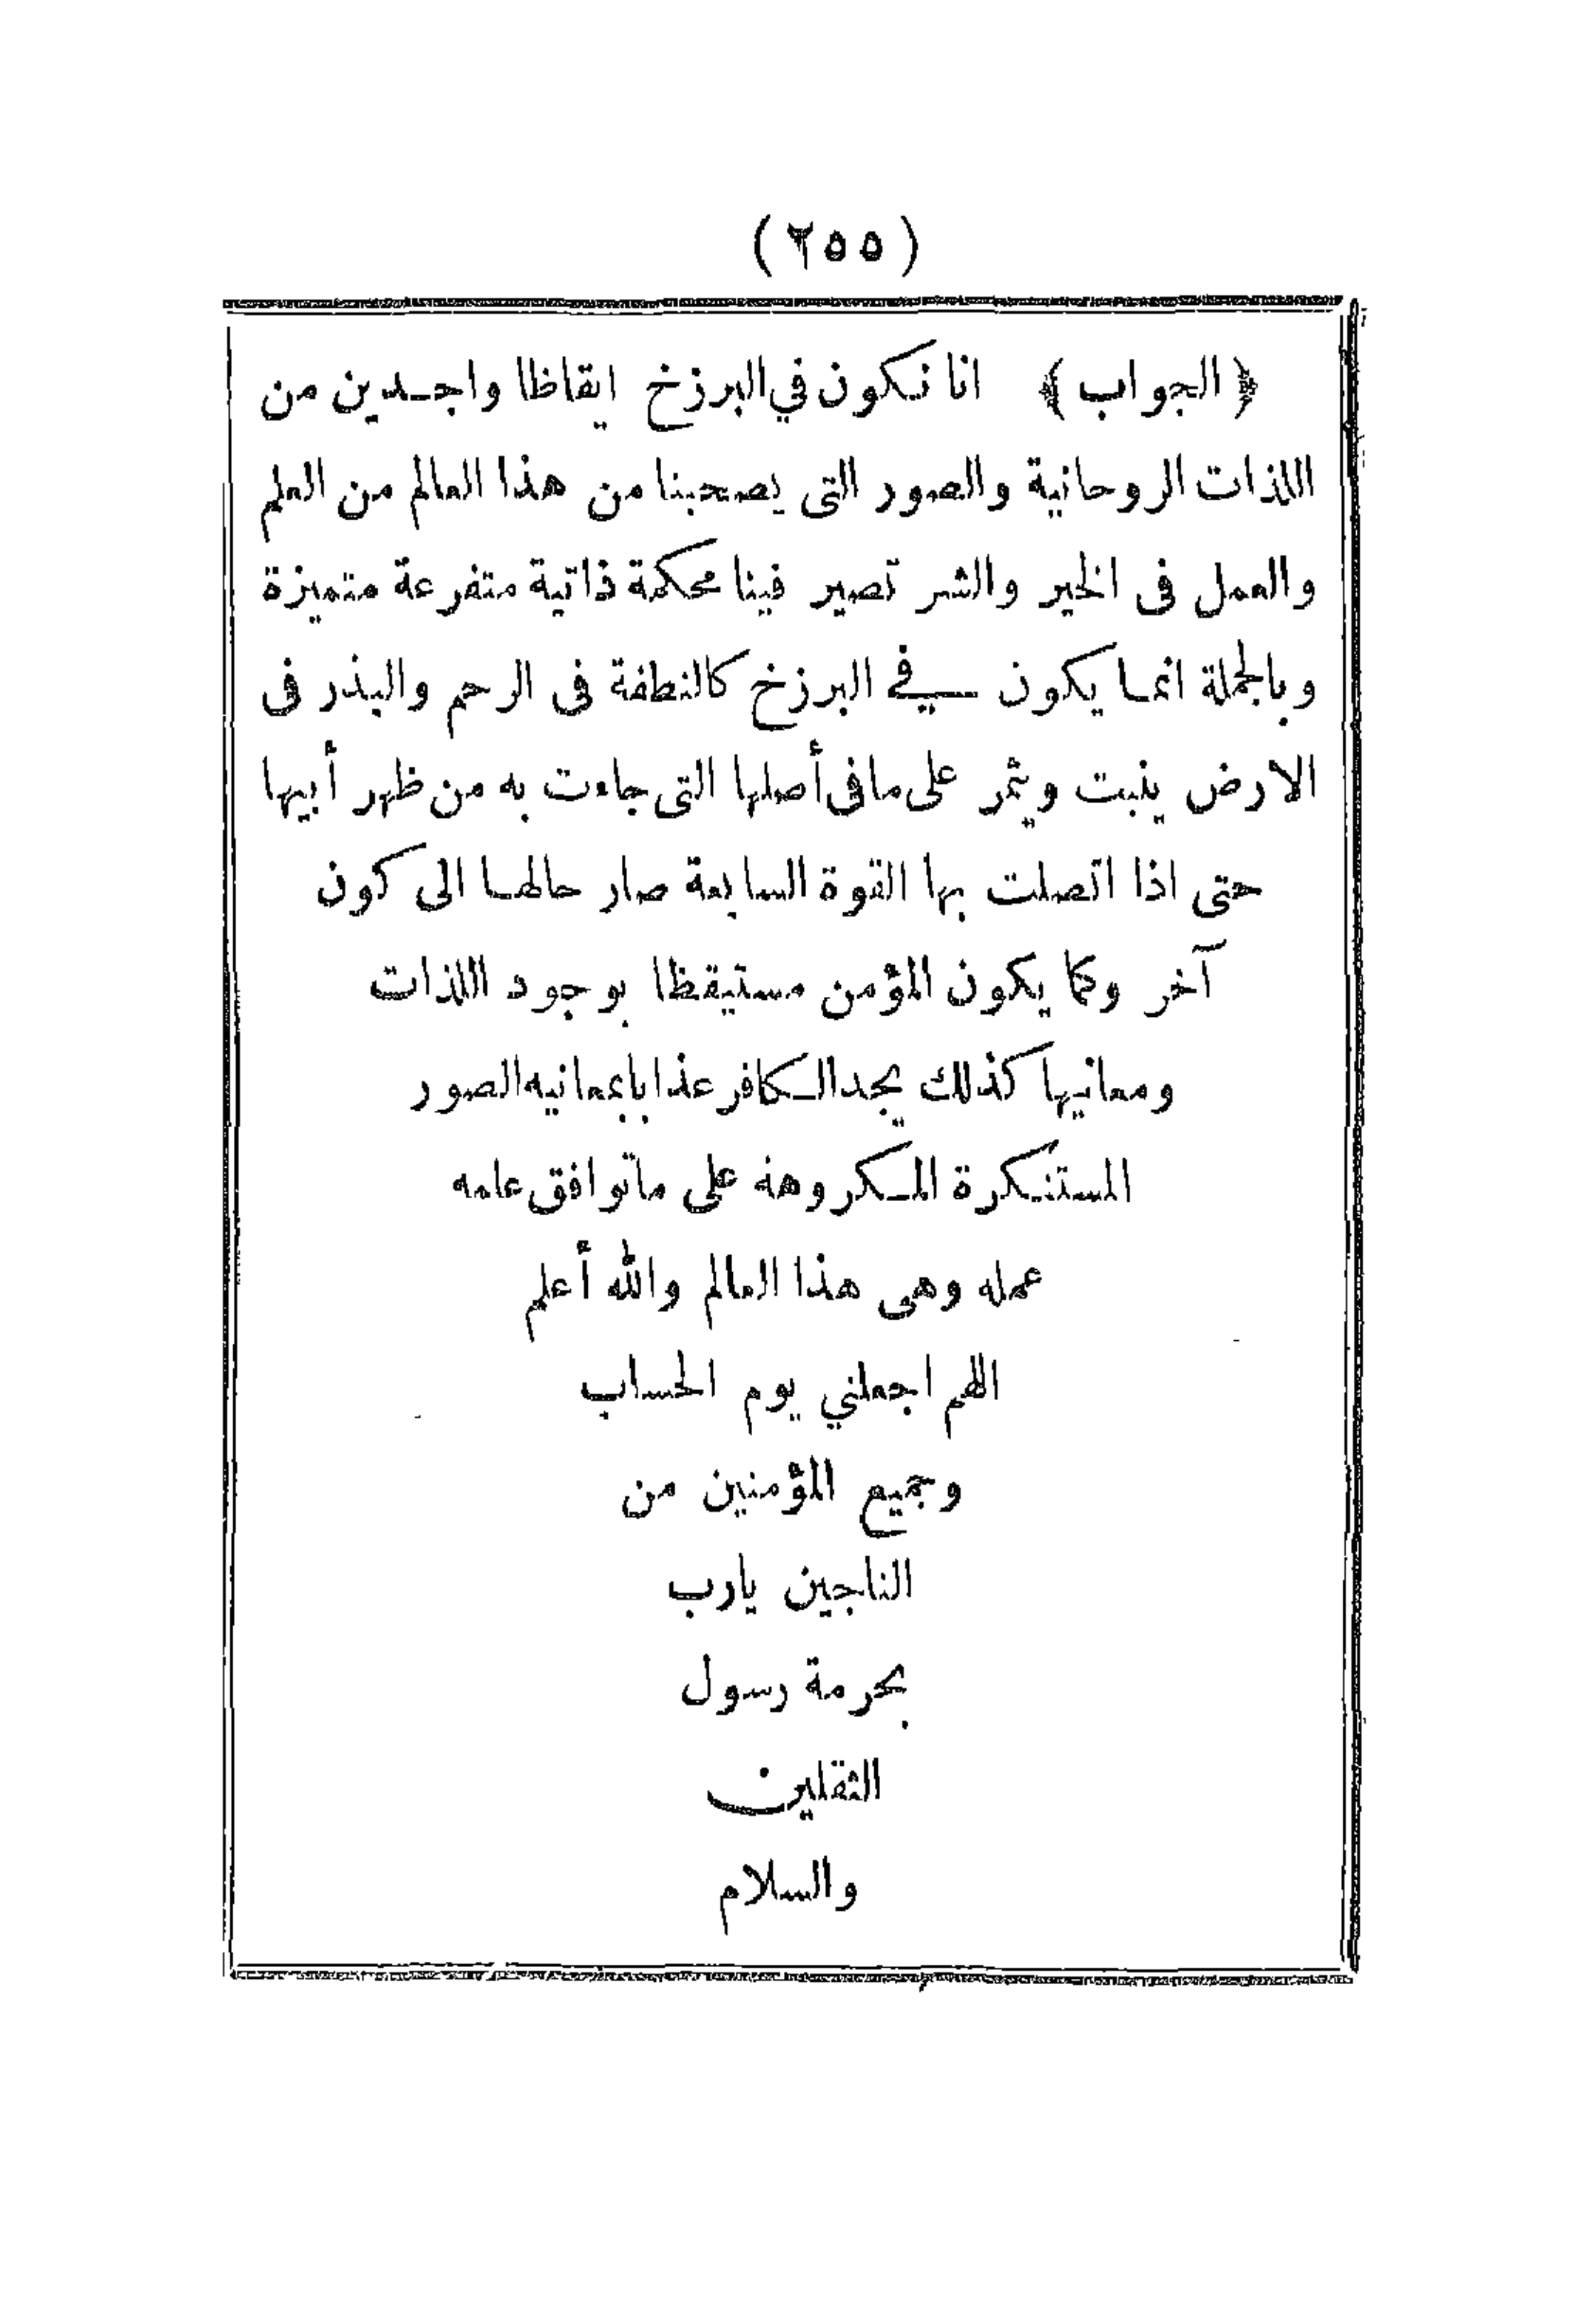 (٢٥٥)
﴿الجواب﴾ انا نكون في البرزخ ايقاظا واجدين من
اللذات الروحانية والصور التى يصحبنا من هذا العالم من العلم
والعمل فى الخير والشر تصير فينا محكمة ذاتية متفرعة متميزة
وبالجملة انما يكون في البرزخ كالنطفة فى الرحم والبذر فى
الارض ينبت ويثمر على مافى أصلها التى جاءت به من ظهر أبيها
حتى اذا اتصلت بها القوة السابعة صار حالها الى كون
آخر وكما يكون المؤمن مستيقظا بوجود اللذات
ومعانيها كذلك يجد الكافر عذابا بمعانيه الصور
المستنكرة المكروهة على ماتوافق علمه
عمله وهى هذا العالم والله أعلم
اللهم اجعلني يوم الحساب
وجميع المؤمنين من
الناجين يارب
بحرمة رسول
الثقلين
والسلام